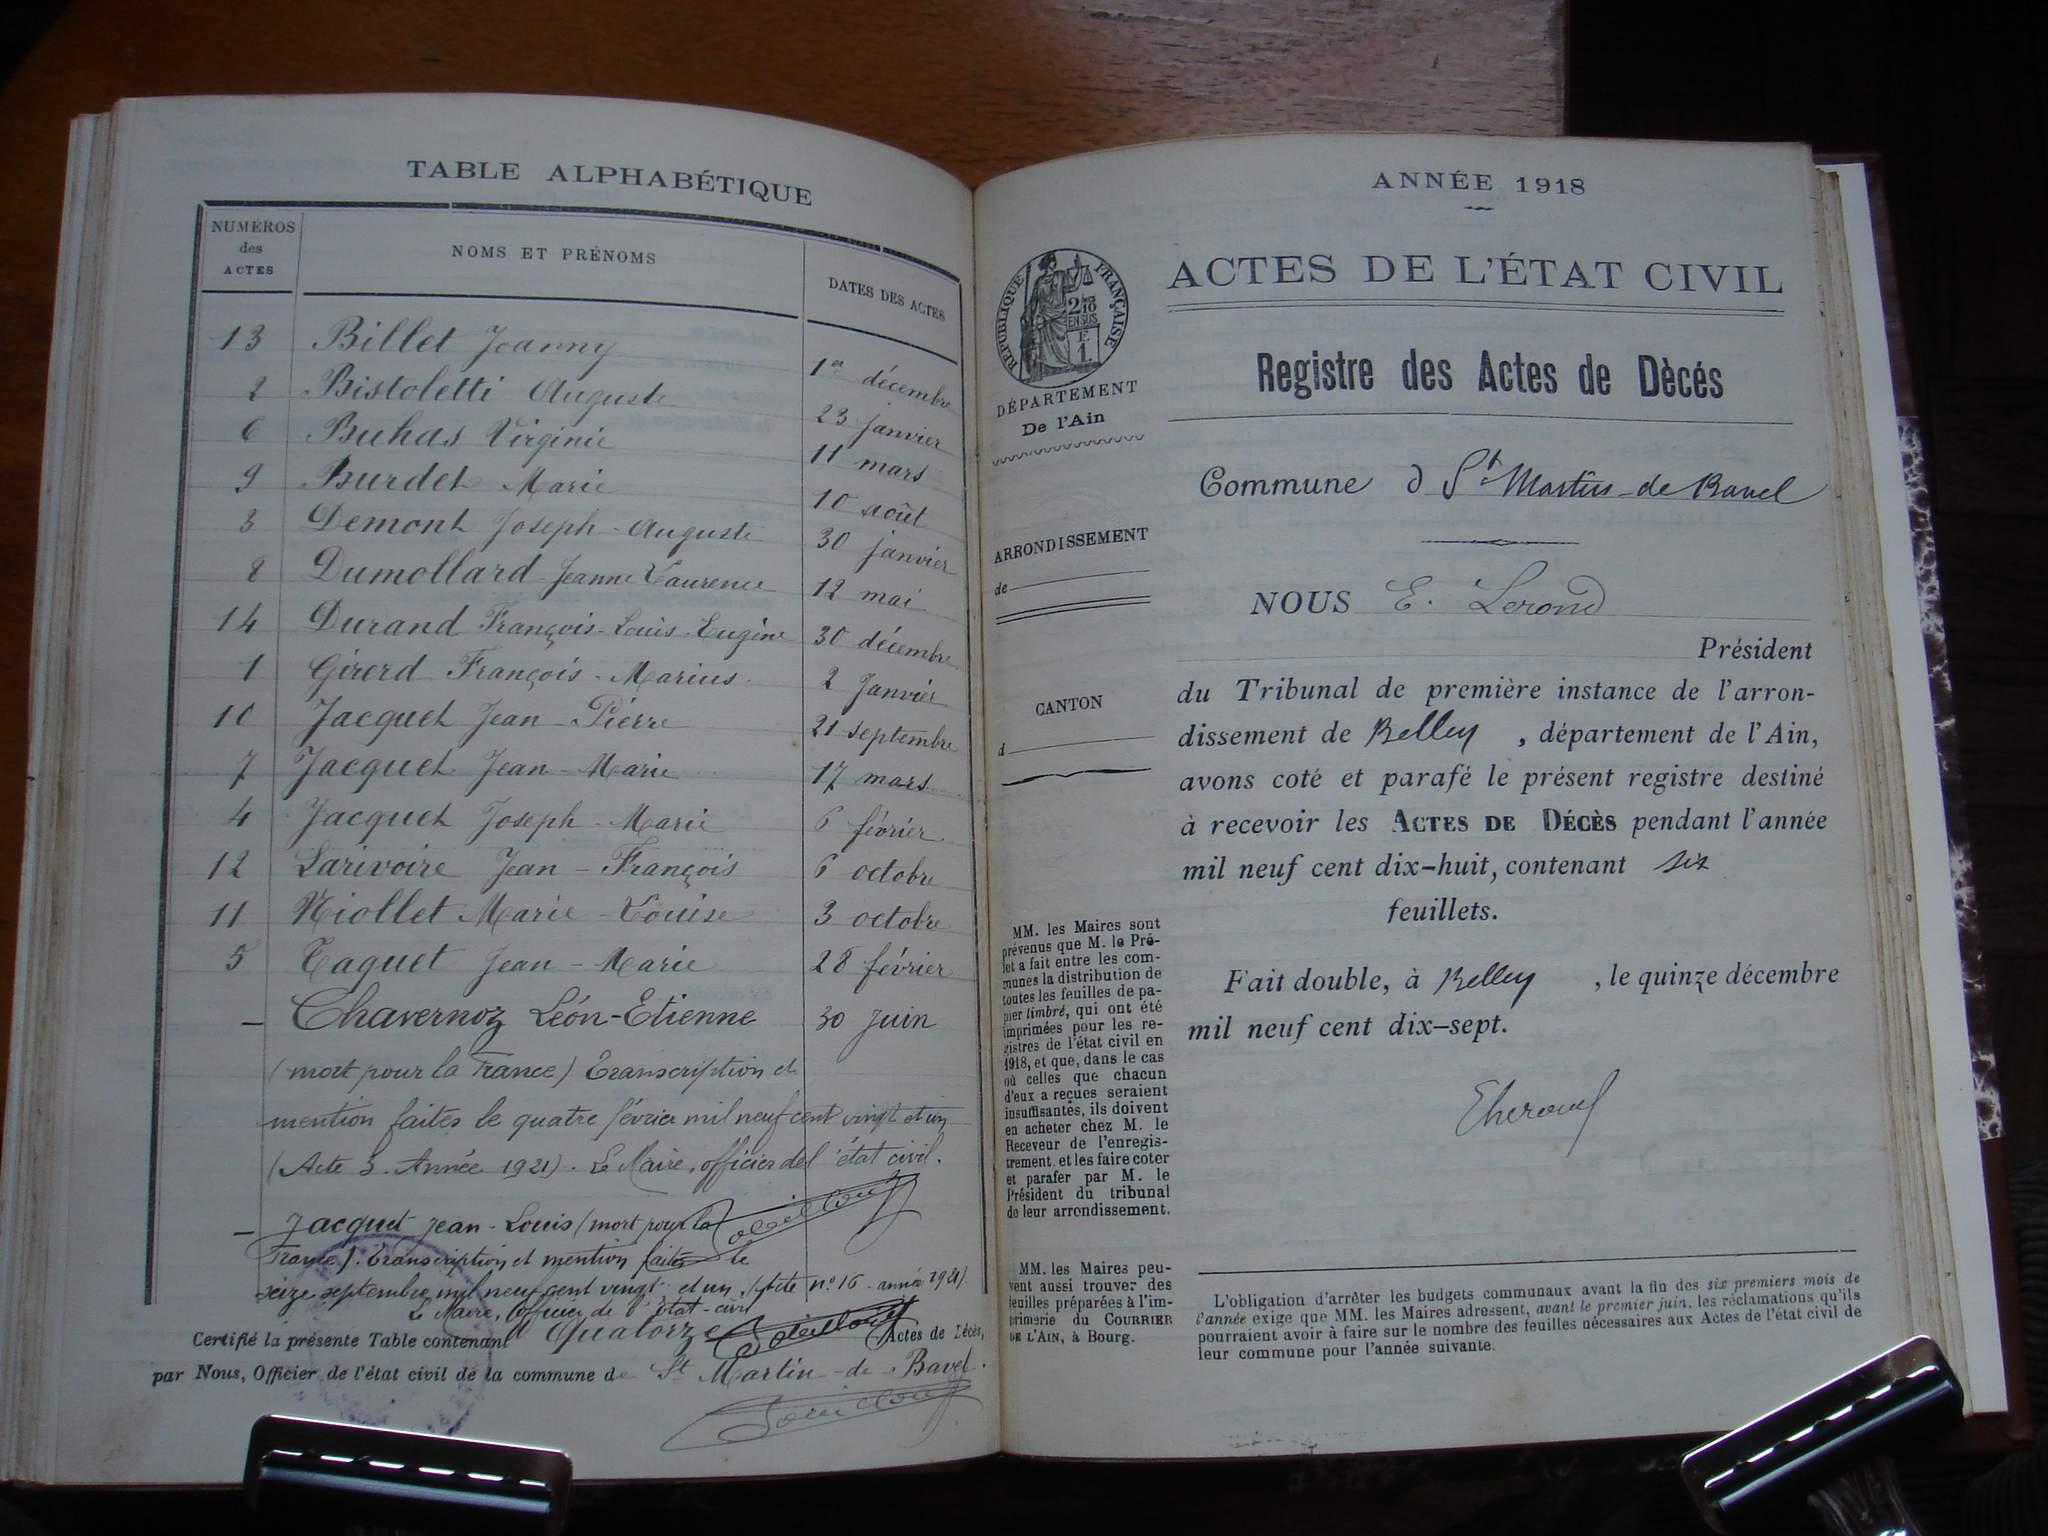 TABLE ALPHABÉTIQUE
NUMÉROS des ACTES
NOMS ET PRÉNOMS
DATES DES ACTES
13 Billet Jeanny 1er décembre
2 Bistoletti Auguste 23 janvier
6 Buhas Virginie 11 mars
9 Burdet Marie 10 août
3 Demont Joseph-Auguste 30 janvier
8 Dumollard Jeanne Laurence 12 mai
14 Durand François-Louis-Eugène 30 décembre
1 Girerd François-Marius 2 Janvier
10 Jacquet Jean-Pierre 21 septembre
7 Jacquet Jean-Marie 17 mars
4 Jacquet Joseph-Marie 6 février
12 Larivoire Jean-François 6 octobre
11 Niollet Marie-Louise 3 octobre
5 Taquet Jean-Marie 28 février
– Chavernoz Léon-Etienne 30 Juin
(mort pour la France) Transcription et
mention faites le quatre février mil neuf cent vingt et un
(Acte 3. Année 1921). Le Maire, officier de l'état civil.
– Jacquet Jean-Louis (mort pour la
France). Transcription et mention faites le
seize septembre mil neuf cent vingt et un (Acte n° 16 - année 1921).
Le Maire, Officier de l'état-civil
Certifié la présente Table contenant Quatorze Actes de Décès,
par Nous, Officier de l'état civil de la commune de St Martin-de-Bavel.
ANNÉE 1918
RÉPUBLIQUE FRANÇAISE
2/10
EN SUS
E
1.
DÉPARTEMENT
De l'Ain
ARRONDISSEMENT
de
CANTON
d
MM. les Maires sont
prévenus que M. le Pré-
fet a fait entre les com-
munes la distribution de
toutes les feuilles de pa-
pier timbré, qui ont été
imprimées pour les re-
gistres de l'état civil en
1918, et que, dans le cas
où celles que chacun
d'eux a reçues seraient
insuffisantes, ils doivent
en acheter chez M. le
Receveur de l'enregis-
trement et les faire coter
et parafer par M. le
Président du tribunal
de leur arrondissement.
MM. les Maires peu-
vent aussi trouver des
feuilles préparées à l'im-
primerie du COURRIER
DE L'AIN, à Bourg.
ACTES DE L'ÉTAT CIVIL
Registre des Actes de Dècés
Commune d St Martin-de-Bavel
NOUS E. Lerond
Président
du Tribunal de première instance de l'arron-
dissement de Belley, département de l'Ain,
avons coté et parafé le présent registre destiné
à recevoir les ACTES DE DÉCÈS pendant l'année
mil neuf cent dix-huit, contenant six
feuillets.
Fait double, à Belley, le quinze décembre
mil neuf cent dix-sept.
L'obligation d'arrêter les budgets communaux avant la fin des six premiers mois de
l'année exige que MM. les Maires adressent, avant le premier juin, les réclamations qu'ils
pourraient avoir à faire sur le nombre des feuilles nécessaires aux Actes de l'état civil de
leur commune pour l'année suivante.